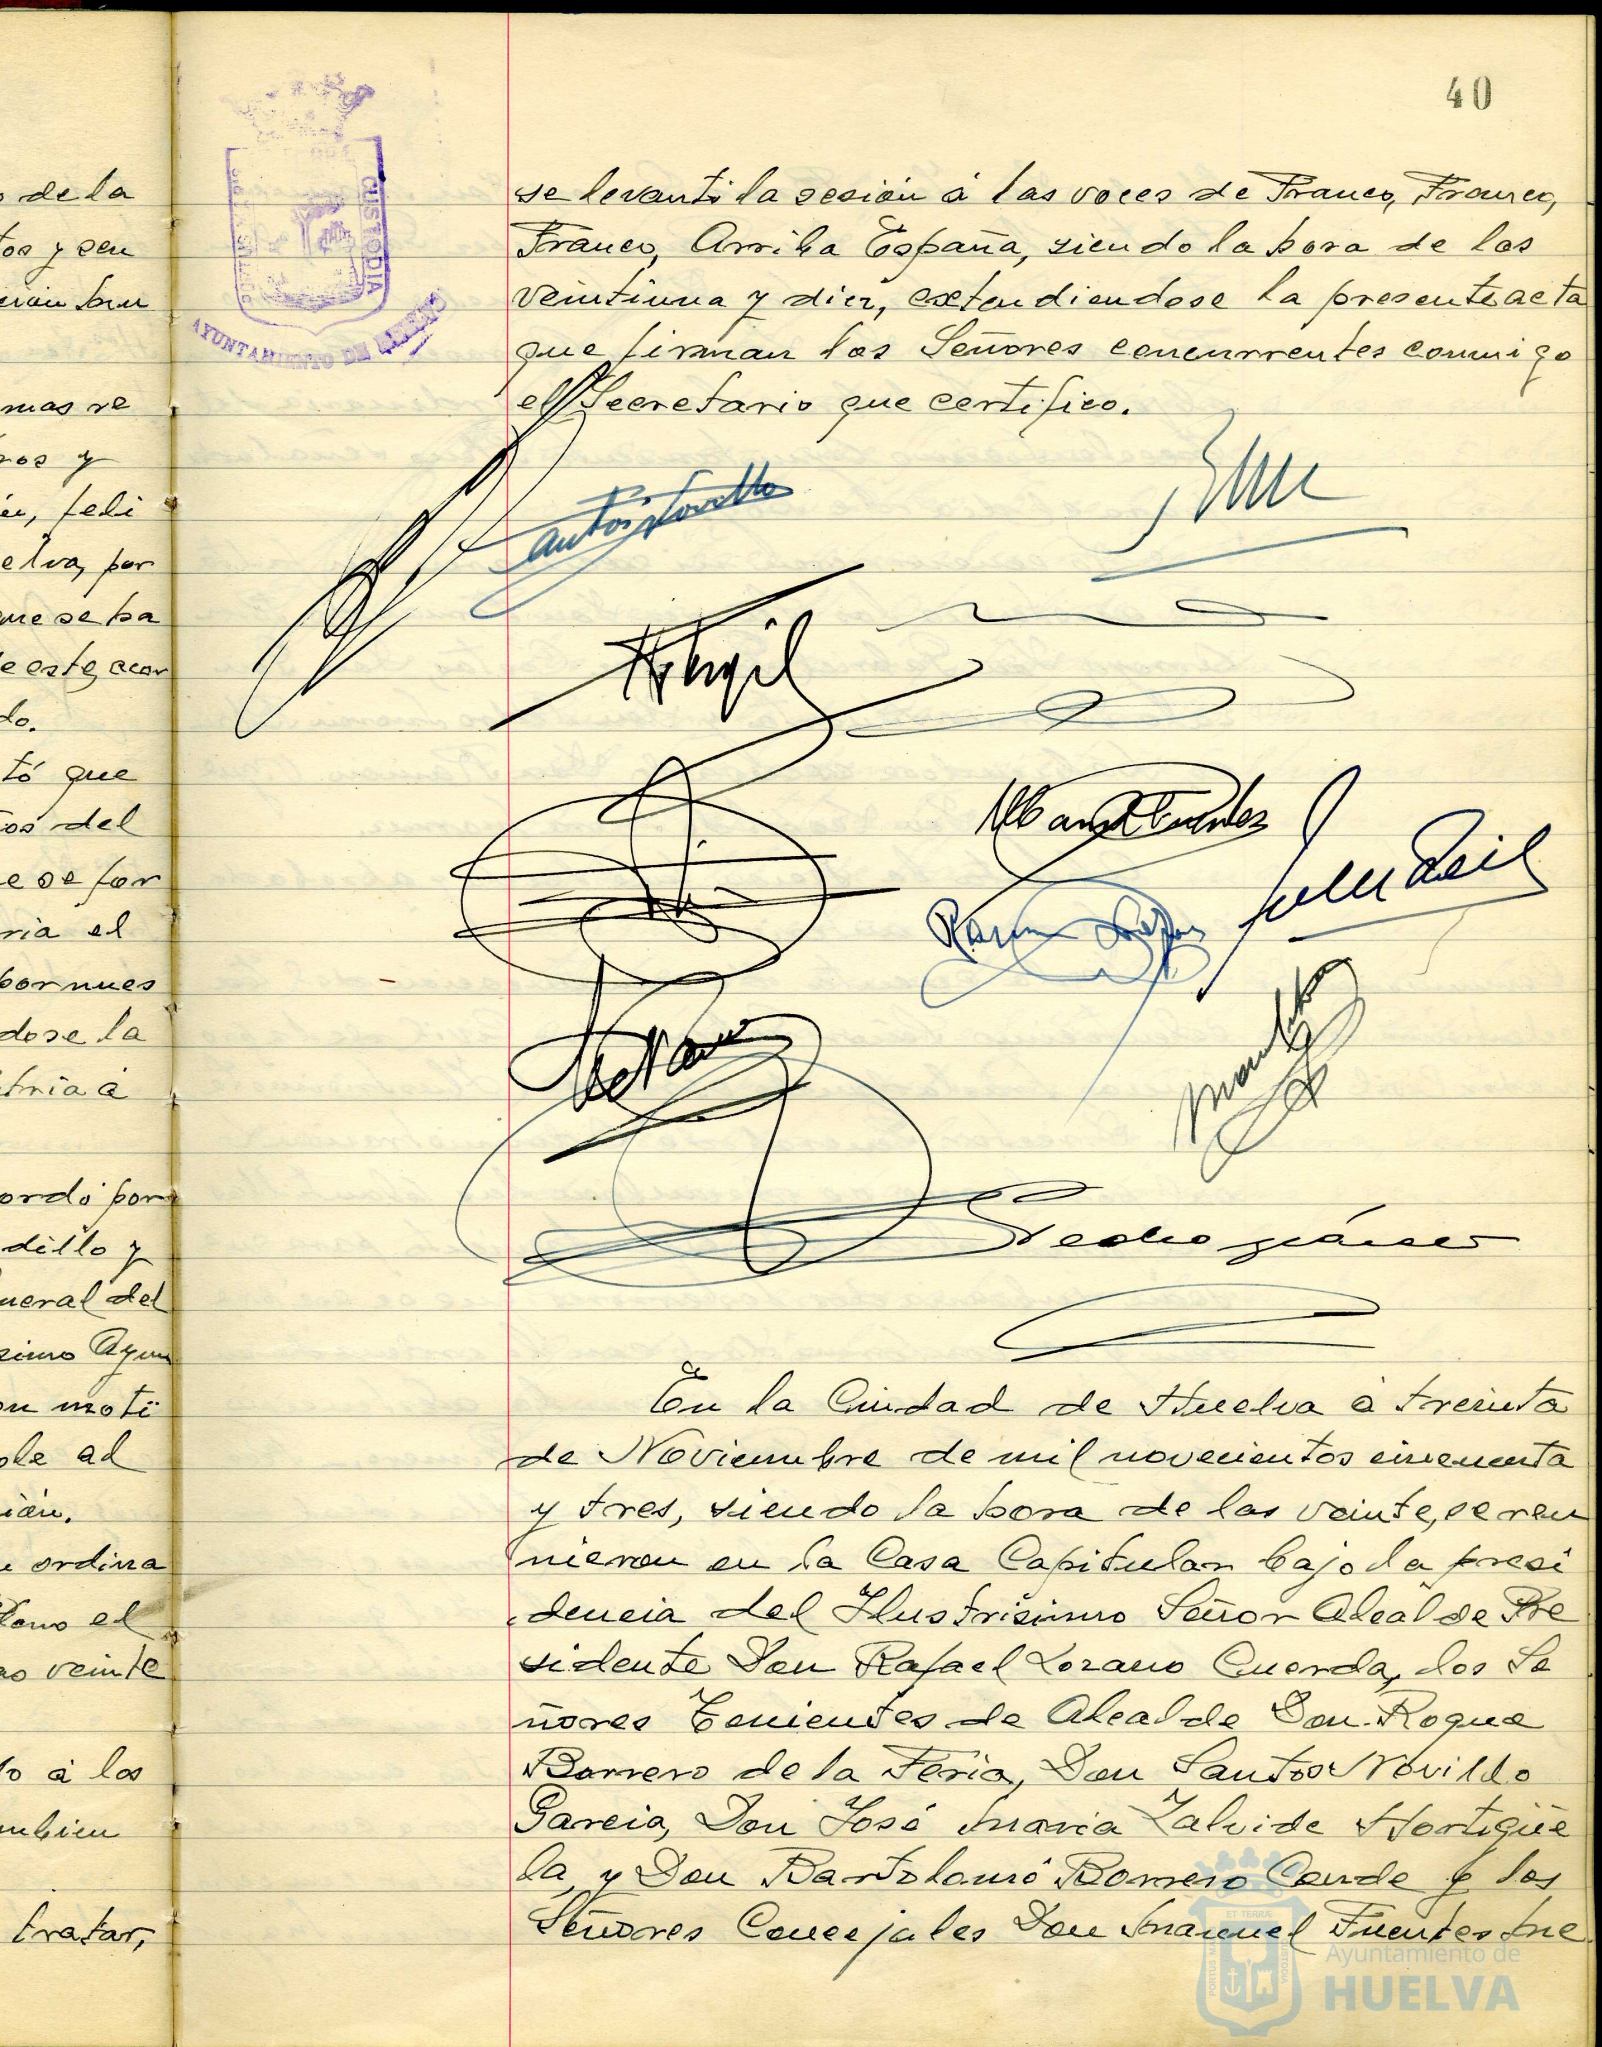 40
se levantó la sesión á las voces de Franco, Franco,
Franco, Arriba España, siendo la hora de las
veintiuna y diez, extendiendose la presente acta
que firman los Señores concurrentes conmigo
el Secretario que certifico.
CUSTODIA
AYUNTAMIENTO DE HUELVA
En la Ciudad de Huelva á treinta
de Noviembre de mil novecientos cincuenta
y tres, siendo la hora de las veinte, se reu
nieron en la Casa Capitular bajo la presi
dencia del Ilustrisimo Señor Alcalde Pre
sidente Don Rafael Lozano Cuerda, los Se
ñores Tenientes de Alcalde Don Roque
Borrero de la Feria, Don Santos Novillo
Garcia, Don José Maria Zalvide Hortigüe
la, y Don Bartolomé Borrero Conde y los
Señores Concejales Don Manuel Fuentes Me
de la
tos y seu
mas re
ros y
feli
elva, por
que se ha
de este acor
do.
tó que
tos del
e se for
ria el
por nues
dose la
tria á
ordó por
dillo y
neral del
simo Ayun
on moti
ble ad
sión.
ordina
el
veinte
á los
mbien
tratar,
Ayuntamiento de
HUELVA